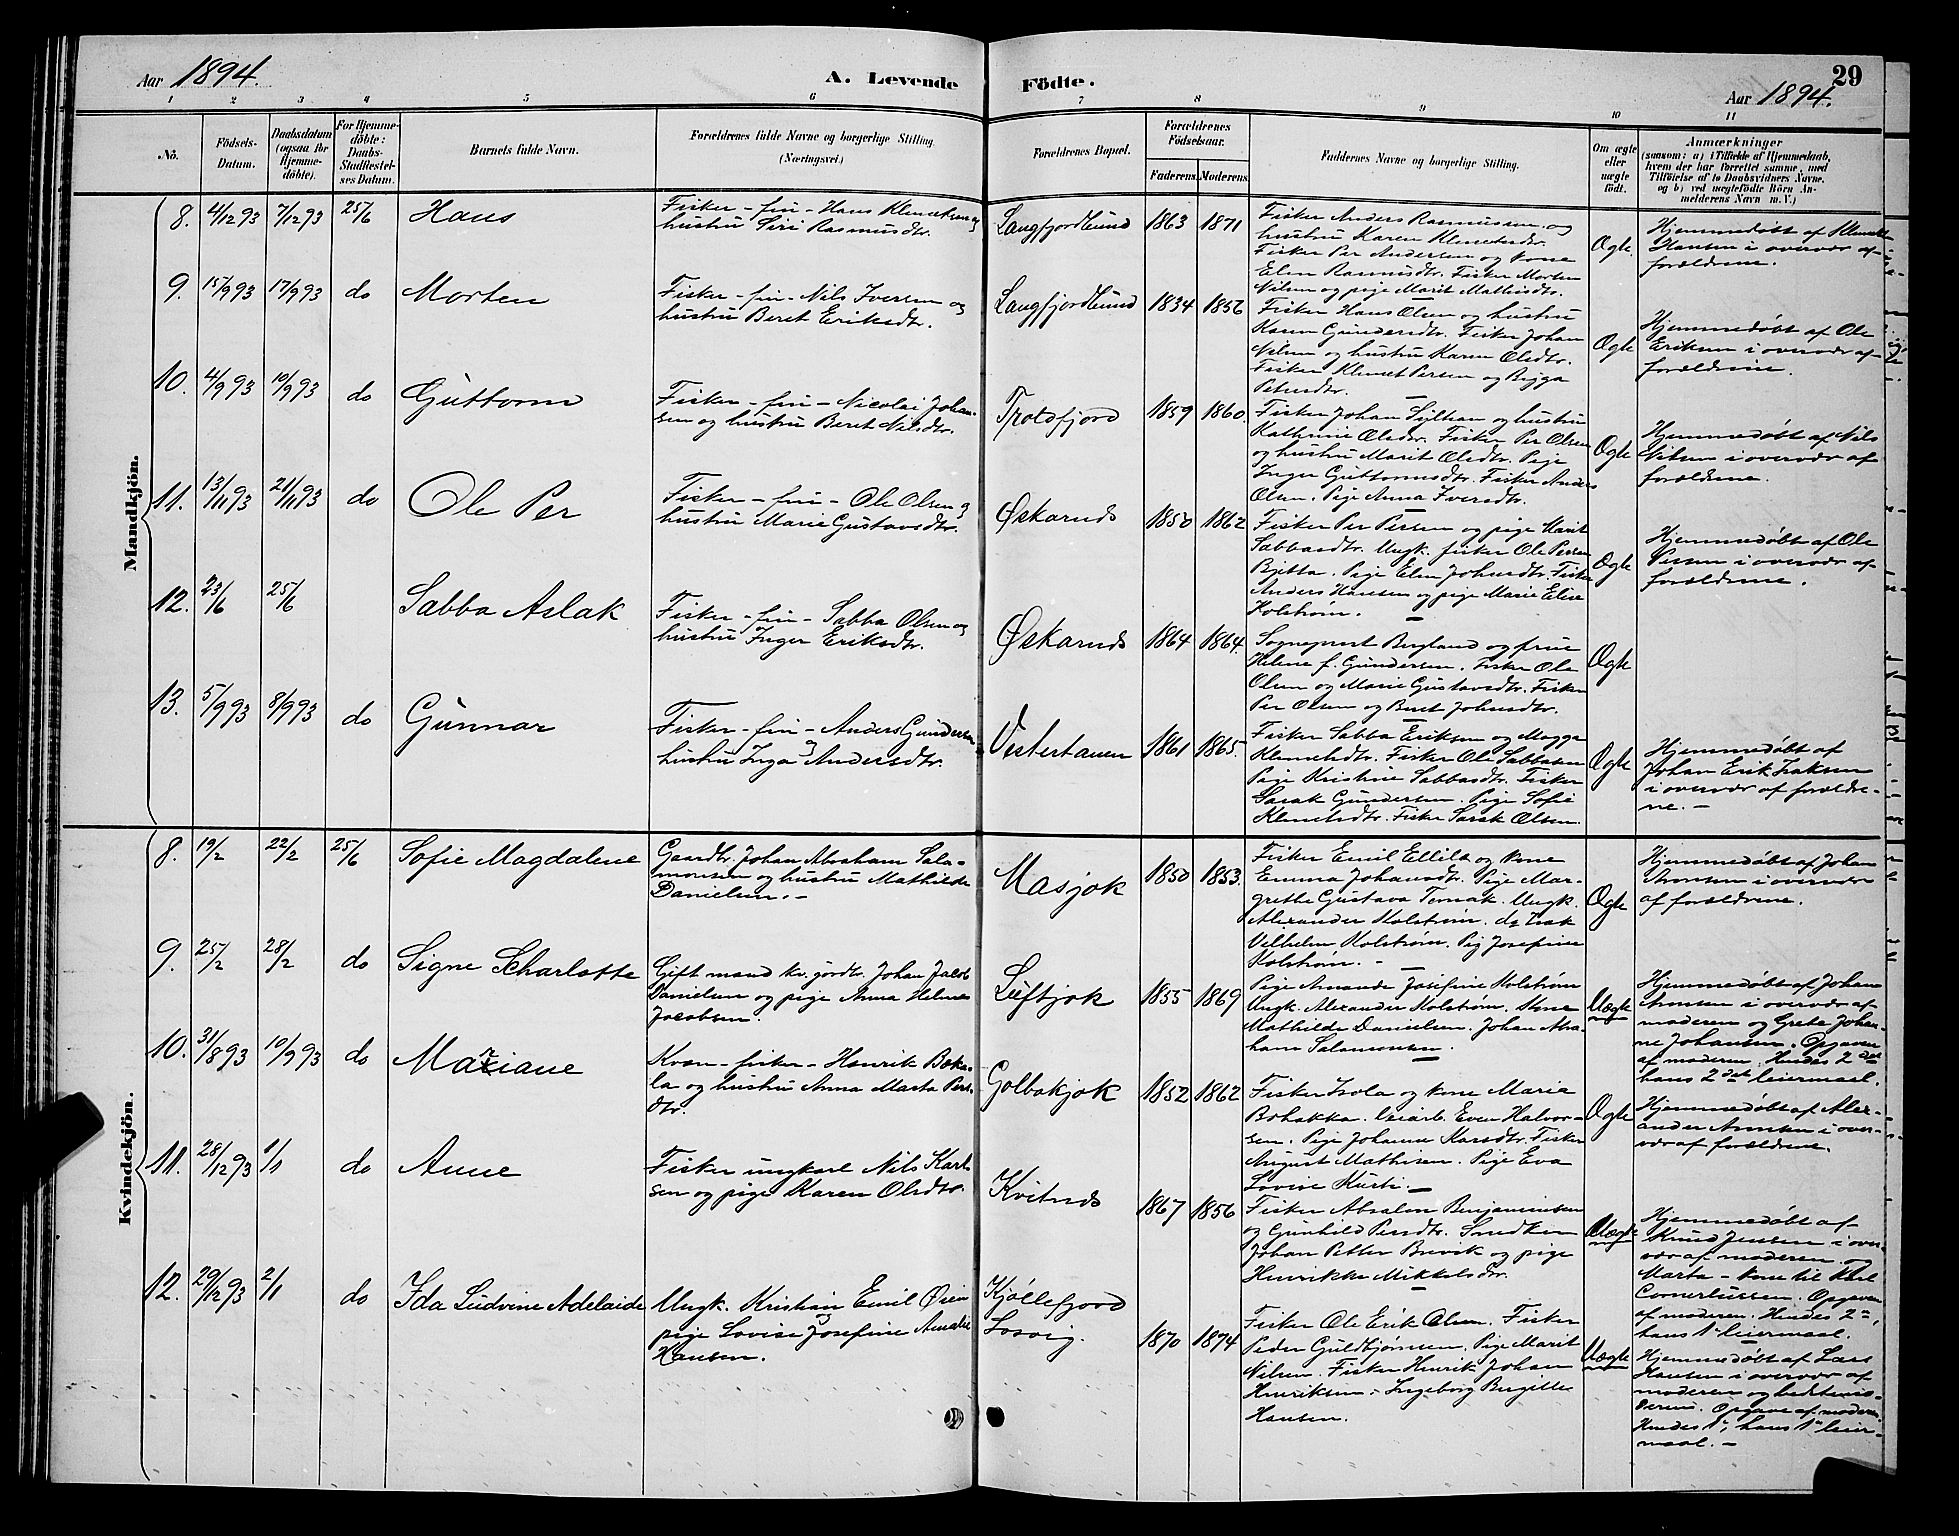 Aar 1894.
A. Levende
Födte.
29
Aar 1894.
1 2 3 4 5 6 7 8 9 10 11
No.
Födsels-
Datum.
Daabsdatum
(ogsaa för
Hjemme-
döbte).
For Hjemme-
döbte:
Daabs-
Stadfæstel-
ses Datum.
Barnets fulde Navn.
Forældrenes fulde Navne og borgerlige Stilling.
(Næringsvei.)
Forældrenes Bopæl.
Forældrenes
Födselsaar.
Faderens. Moderens.
Faddernes Navne og borgerlige Stilling.
Om ægte
eller
uægte
födt.
Anmærkninger
(saasom: a) i Tilfælde af Hjemmedaab,
hvem der har forrettet samme, med
Tilföielse af to Daabsvidners Navne,
og b) ved uægtefödte Börn An-
melderens Navn m. V.)
Mandkjön.
8. 4/12 93 7/12 93 25/6 Hans
Fisker - fin - Hans Klemetsen og
hustru Siri Rasmusdtr.
Langfjordbund 1863 1871
Fisker Anders Rasmussen og
hustru Karen Klemetsdtr.
Fisker Per Andersen og kone
Elen Rasmusdtr. Fisker Morten
Nilsen og pige Marit Mathisdtr.
Ægte.
Hjemmedøbt af Klemet
Hansen i overvær af
forældrene.
9. 15/9 93 17/9 93 do Morten
Fisker - fin - Nils Iversen og
hustru Beret Eriksdtr.
Langfjordbund 1834 1856
Fisker Hans Olsen og hustru
Karen Gundersdtr. Fisker Johan
Nilsen og hustru Karen Olsdtr.
Fisker Klemet Persen og Bigga
Petersdtr.
Ægte
Hjemmedøbt af Ole
Eriksen i overvær af
forældrene.
10. 4/9 93 10/9 93 do Guttorm
Fisker - fin - Nicolai Johan-
sen og hustru Beret Nilsdtr.
Troldfjord 1859 1860.
Fisker Johan and hustru
Kathrine Olsdtr. Fisker Per Olsen
og hustru Marit Olsdtr. Pige
Inger Guttormsdtr. Fisker Anders
Olsen. Pige Anna Iversdtr.
Ægte
Hjemmedøbt af Nils
Nilsen i overvær af
forældrene.
11. 13/11 93 21/11 93 do Ole Per
Fisker - fin - Ole Olsen og
hustru Marie Gustavsdtr.
Øskarnds 1850 1862
Fisker Per Persen og pige Marit
Sabbasdtr. Ungk. fisker Ole Persen
Bjetta. Pige Elen Johnsdtr. Fisker
Anders Hansen og pige Marie Elise
Kolstrøm.
Ægte
Hjemmedøbt af Ole
Persen i overvær af
forældrene.
12. 23/6 25/6 Sabba Aslak
Fisker - fin - Sabba Olsen og
hustru Inger Eriksdtr.
Øskarnds 1864 1864.
Sogneprest Bergland og frue
Helene f. Gundersen. Fisker Ole
Olsen og Marie Gustavsdtr. Fisker
Per Olsen og Beret Johnsdtr.
Ægte
13. 5/9 93 8/9 93 do Gunnar
Fisker - fin - Anders Gundersen
og
hustru Inga Andersdtr.
Vestertanen 1861 1865.
Fisker Sabba Eriksen og Magga
Klemetsdtr. Fisker Ole Sabbasen
Pige Kristine Sabbasdtr. Fisker
Isrik Gundersen. Pige Sofie
Klemetsdtr. Fisker Isak Olsen.
Ægte
Hjemmedøbt af
Johan Erik Isaksen
i overvær af forældre-
ne. -
Kvindekjön.
8. 19/2 22/2 25/6 Sofie Magdalene
Gaardbr. Johan Abraham Sala-
monsen og hustru Mathilde
Danielsen. -
Masjok 1850 1853.
Fisker Emil Ellila og kone
Emma Johansdtr. Pige Mar-
grethe Gustava Tornak. Ungk.
Alexander Kolstrøm. do Isak
Vilhelm Kolstrøm. Pig Josefine
Kolstrøm. -
Ægte
Hjemmedøbt af Johan
Aronsen i overvær
af forældrene.
9. 25/2 28/2 do Signe Scharlotte
Gift mand kv. jordbr. Johan Jacob
Danielsen og pige Anna Helene
Jacobsen.
Luftjok 1855 1869
Pige Amanda Josefine Kolstrøm
Ungk. Alexander Kolstrøm. Kone
Mathilde Danielsen. Johan Abra-
ham Salamonsen.
Uægte
Hjemmedøbt af Johan
Aronsen i overvær af
moderen og Grete Johan-
ne Johansen. Opgaven
af moderen. Hendes 2det
hans 2det leiermaal.
10. 31/8 93 10/9 93 do Mariane
Kvæn - fisker - Henrik Boka-
la og hustru Anna Marta Pers-
dtr.
Golbakjok 1852 1862
Fisker Isola og kone Maria
Bohakka. leiarb. Even Halvor-
sen. Pige Johanne Karsdtr. Fisker
August Mathisen. Pige Eva
Lovise Kurti. -
Ægte
Hjemmedøbt af Alex-
ander Aronsen i over-
vær af forældrene.
11. 28/12 93 1/1 do Anne
Fisker ungkarl Nils Karl-
sen og pige Karen Olsdtr.
Kvitnds 1867 1856
Fisker Absalon Benjaminsen
og Gunhild Persdtr. Smedken
Johan Petter Brevik og pige
Henrikke Mikkelsdtr.
Uægte
Hjemmedøbt af
Knud Jensen i over-
vær af moderen og
Marta - kone til Karl
Corneliussen. Opgaven
af moderen. Hendes 2det,
hans 1ste leiermaal.
12. 29/12 93 2/1 do Ida Ludvine Adelaide
Ungk. Kristian Emil Øien
og
pige Lovise Josefine Amalie
Hansen.
Kjøllefjord
Losvig. 1870 1874
Fisker Ole Erik Olsen. Fisker
Peder Guldbjørnsen. Pige Marit
Nilsen. Fisker Henrik Johan
Henriksen - Ingeborg Birgitte
Hansen.
Uægte
Hjemmedøbt af Lars
Hansen i overvær af
moderen og bedstemo-
deren. Opgave af moderen.
Hendes 1ste, hans 1ste leier-
maal. -